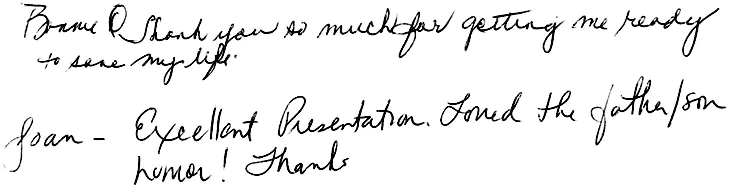 Bonnie D Thank you so much for getting me ready
to save my life.
Joan - Excellent Presentation. Loved the father/son
humor! Thanks